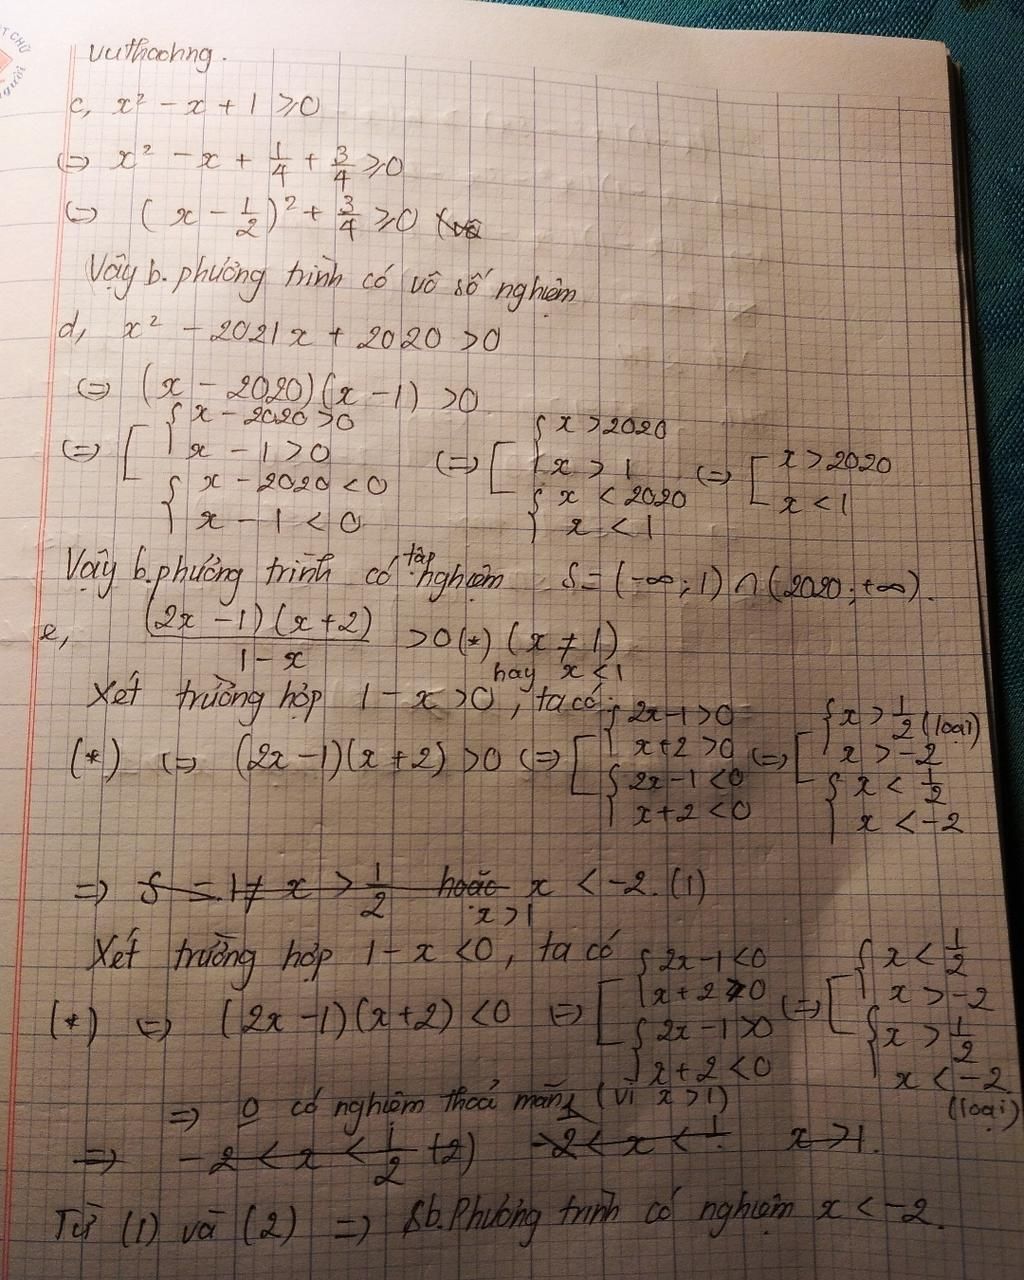 vuthaohng.
c, x² - x + 1 ≥ 0
⇔ x² - x + 1/4 + 3/4 ≥ 0
⇔ (x - 1/2)² + 3/4 ≥ 0
Vậy b.phương trình có vô số nghiệm
d, x² - 2021x + 2020 > 0
⇔ (x - 2020)(x - 1) > 0
⇔ [ { x - 2020 > 0 ; x - 1 > 0 { x - 2020 < 0 ; x - 1 < 0 ⇔ [ { x > 2020 ; x > 1 { x < 2020 ; x < 1 ⇔ [ x > 2020 ; x < 1
Vậy b.phương trình có tập nghiệm S = (-∞; 1) ∩ (2020; +∞).
e, (2x - 1)(x + 2) / 1 - x > 0 (*) (x ≠ 1)
Xét trường hợp 1 - x > 0 hay x < 1, ta có:
(*) ⇔ (2x - 1)(x + 2) > 0 ⇔ [ { 2x - 1 > 0 ; x + 2 > 0 { 2x - 1 < 0 ; x + 2 < 0 ⇔ [ { x > 1/2 (loại) ; x > -2 { x < 1/2 ; x < -2
⇒ S = 1 ≠ x > 1/2 hoặc x < -2. (1)
x > 1
Xét trường hợp 1 - x < 0, ta có
(*) ⇔ (2x - 1)(x + 2) < 0 ⇔ [ { 2x - 1 < 0 ; x + 2 > 0 { 2x - 1 > 0 ; x + 2 < 0 ⇔ [ { x < 1/2 ; x > -2 { x > 1/2 ; x < -2 (loại)
⇒ 0 có nghiệm thoả mãn (vì x > 1)
⇒ -2 < x < 1/2 (2) -2 < x < 1 x > 1.
Từ (1) và (2) ⇒ b.Phương trình có nghiệm x < -2.